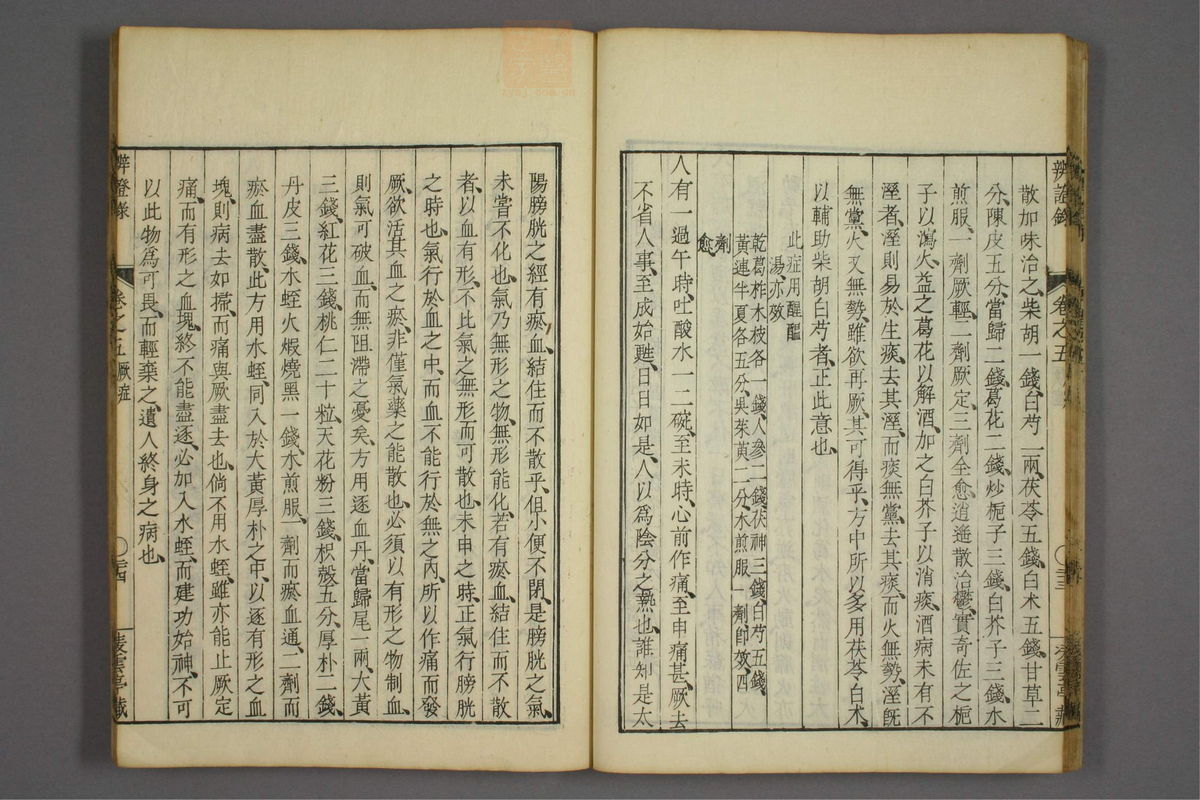 辨證錄
卷之五
散加味治之、柴胡一錢、白芍一兩、茯苓五錢、白术五錢、甘草二
分、陳皮五分、當歸二錢、葛花二錢、炒梔子三錢、白芥子三錢、水
煎服、一劑厥輕、二劑厥定、三劑全愈、逍遙散治鬱、實奇佐之梔
子以瀉火、益之葛花以解酒、加之白芥子以消痰、酒病未有不
溼者、溼則易於生痰、去其溼、而痰無黨、去其痰、而火無勢、溼既
無黨、火又無勢、雖欲再厥、其可得乎、方中所以多用茯苓、白术、
以輔助柴胡白芍者、正此意也、
此症用醒醧
湯、亦效
乾葛柞木枝各一錢、人參二錢茯神三錢、白芍五錢、
黃連半夏各五分、吳茱萸二分、水煎服一劑、卽效、四
劑
愈
人有一過午時、吐酸水一二碗、至未時、心前作痛、至申痛甚、厥去
不省人事、至戌始甦、日日如是、人以爲陰分之熱也、誰知是太
陽膀胱之經有瘀血結住而不散乎、但小便不閉、是膀胱之氣、
未嘗不化也、氣乃無形之物、無形能化、若有瘀血、結住而不散
者、以血有形、不比氣之無形而可散也、未申之時、正氣行膀胱
之時也、氣行於血之中、而血不能行於無之內、所以作痛而發
厥、欲活其血之瘀、非僅氣藥之能散也、必須以有形之物制血、
則氣可破血、而無阻滯之憂矣、方用逐血丹、當歸尾一兩、大黃
三錢、紅花三錢、桃仁二十粒、天花粉三錢、枳殼五分、厚朴二錢、
丹皮三錢、水蛭火煅燒黑一錢、水煎服、一劑而瘀血通、二劑而
瘀血盡散、此方用水蛭、同入於大黃厚朴之中、以逐有形之血
塊、則病去如掃、而痛與厥盡去也、倘不用水蛭、雖亦能止厥定
痛、而有形之血塊、終不能盡逐、必加入水蛭、而建功始神、不可
以此物爲可畏、而輕棄之、遺人終身之病也、
辨證錄
卷之五 厥症